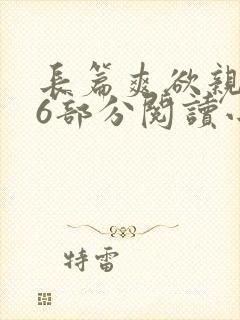 長篇爽欲親
6部分閱讀
特雷